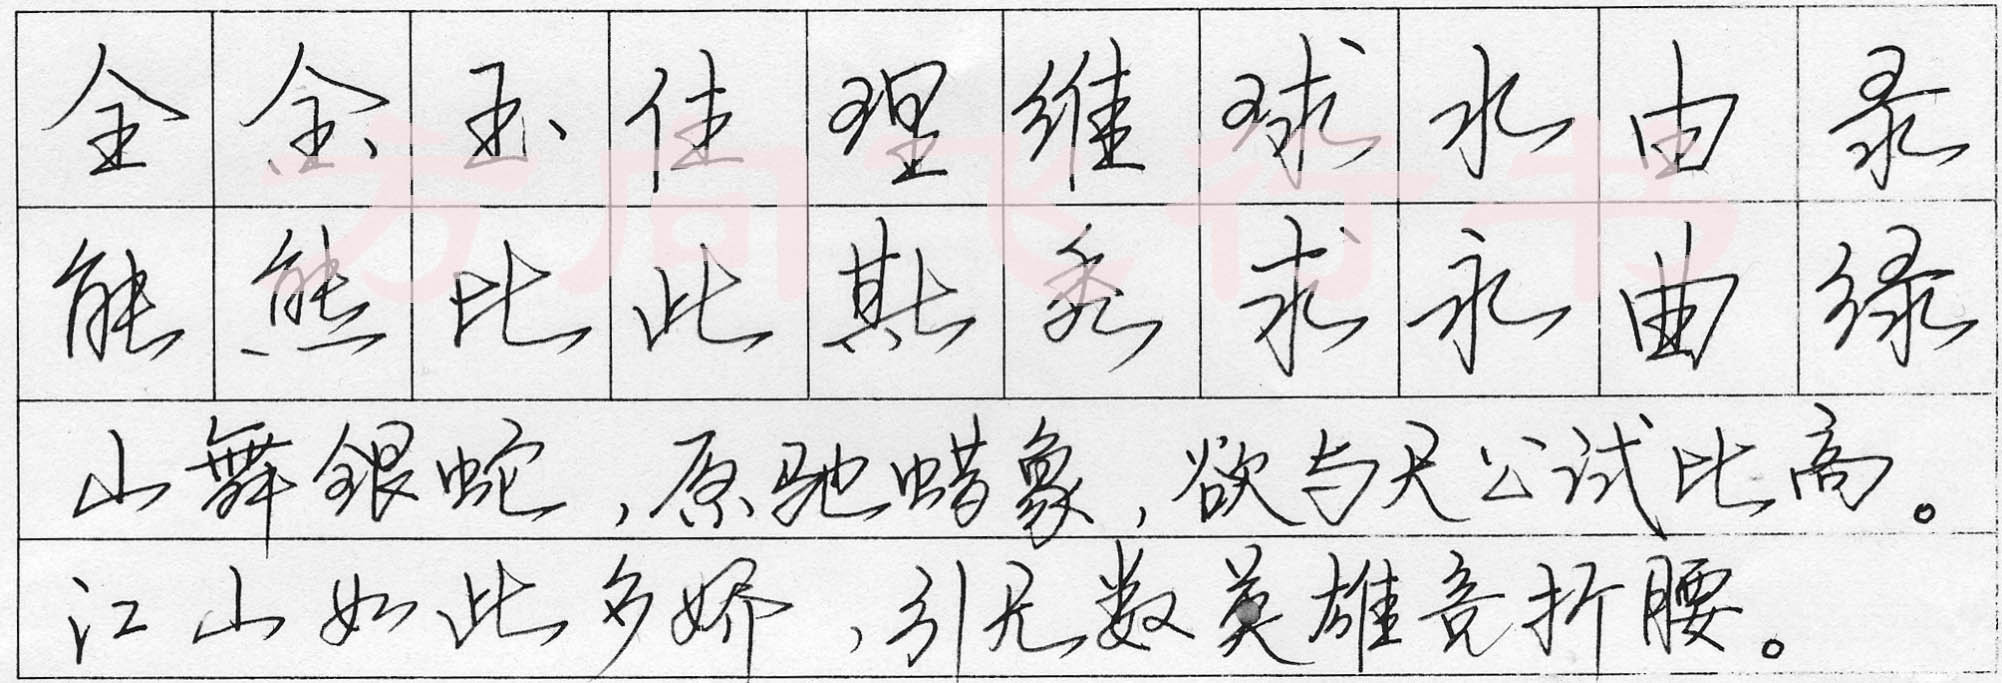 全 金 玉 住 理 维 球 水 由 录
能 熊 比 此 斯 秀 求 永 曲 绿
山舞银蛇，原驰蜡象，欲与天公试比高。
江山如此多娇，引无数英雄竞折腰。
方向飞行书